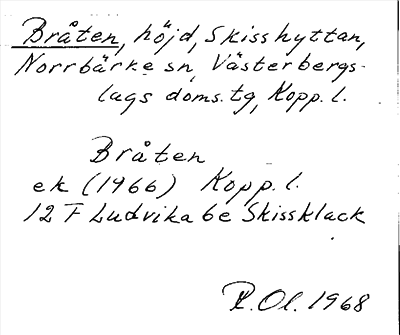 Bråten, höjd, Skisshyttan,
Norrbärke sn, Västerbergs-
lags doms.tg, Kopp. l.
Bråten
ek (1966) Kopp. l.
12 F Ludvika 6e Skissklack
R. Ol. 1968